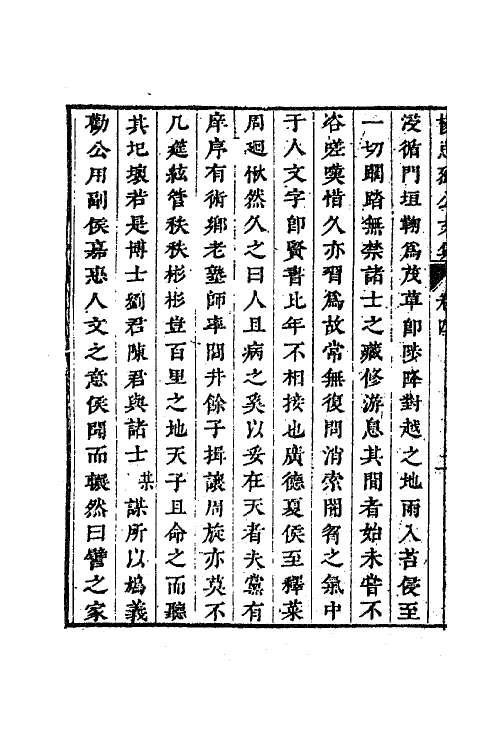 沒循門垣鞠爲茂草卽陟降對越之地雨入苔侵至
一切闌踏無禁諸士之藏修游息其間者始未嘗不
咨嗟歎惜久亦習爲故常無復問消索闇芴之氣中
于人文字卽賢書比年不相接也廣德夏侯至釋菜
周廻愀然久之曰人且病之奚以妥在天者夫黨有
庠序有術鄉老塾師率閭井餘子揖讓周旋亦莫不
几筵絃管秩秩彬彬豈百里之地天子且命之而聽
其圮壞若是博士劉君陳君與諸士某謀所以鳩義
勸公用副侯嘉惠人文之意侯聞而囅然曰譬之家